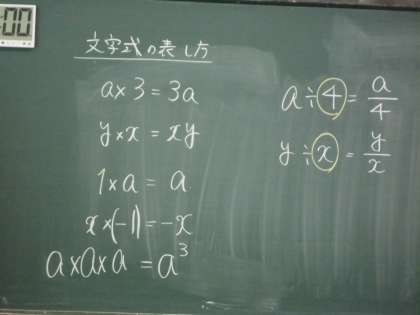 :00
文字式の表し方
a×3=3a
y×x=xy
1×a=a
x×(-1)=-x
a×a×a=a³
a÷4=a/4
y÷x=y/x